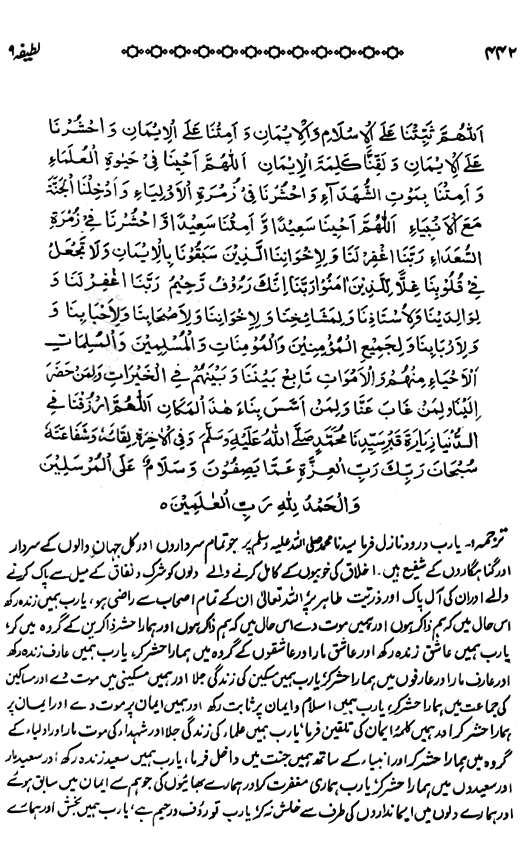 ۴۴۲ لطیفہ ۹
اَللّٰهُمَّ ثَبِّتْنَا عَلَى الْاِسْلَامِ وَالْاِيْمَانِ وَ اَمِتْنَا عَلَى الْاِيْمَانِ وَاحْشُرْنَا
عَلَى الْاِيْمَانِ وَ لَقِّنَّا كَلِمَةَ الْاِيْمَانِ اَللّٰهُمَّ اَحْيِنَا فِىْ حَيٰوةِ الْعُلَمَاءِ
وَ اَمِتْنَا بِمَوْتِ الشُّهَدَآءِ وَ احْشُرْنَا فِىْ زُمْرَةِ الْاَوْلِيَاءِ وَ اَدْخِلْنَا الْجَنَّةَ
مَعَ الْاَنْبِيَاءِ اَللّٰهُمَّ اَحْيِنَا سَعِيْدًا وَّ اَمِتْنَا سَعِيْدًا وَّ احْشُرْنَا فِىْ زُمْرَةِ
السُّعَدَاءِ رَبَّنَا اغْفِرْ لَنَا وَ لِاِخْوَانِنَا الَّذِيْنَ سَبَقُوْنَا بِالْاِيْمَانِ وَلَا تَجْعَلْ
فِىْ قُلُوْبِنَا غِلًّا لِّلَّذِيْنَ اٰمَنُوْا رَبَّنَا اِنَّكَ رَءُوْفٌ رَّحِيْمٌ رَبَّنَا اغْفِرْ لَنَا وَ
لِوَالِدَيْنَا وَلِاُسْتَاذِنَا وَلِمَشَائِخِنَا وَ لِاِخْوَانِنَا وَلِاَصْحَابِنَا وَلِاَحْبَابِنَا وَ
وَلِاَرْبَابِنَا وَلِجَمِيْعِ الْمُؤْمِنِيْنَ وَالْمُؤْمِنَاتِ وَ الْمُسْلِمِيْنَ وَالْمُسْلِمَاتِ
اَلْاَحْيَاءِ مِنْهُمْ وَالْاَمْوَاتِ تَابِعْ بَيْنَنَا وَ بَيْنَهُمْ فِى الْخَيْرَاتِ وَلِمَنْ حَضَرَ
وَلِمَنْ غَابَ عَنَّا وَلِمَنْ اَسَّسَ بِنَاءَ هٰذَا الْمَكَانِ اَللّٰهُمَّ ارْزُقْنَا فِى
الدُّنْيَا زِيَارَةَ قَبْرِ سَيِّدِنَا مُحَمَّدٍ صَلَّى اللهُ عَلَيْهِ وَسَلَّمَ وَفِى الْاٰخِرَةِ لِقَائَهٗ وَشَفَاعَتَهٗ
سُبْحَانَ رَبِّكَ رَبِّ الْعِزَّةِ عَمَّا يَصِفُوْنَ وَ سَلَامٌ عَلَى الْمُرْسَلِيْنَ
وَالْحَمْدُ لِلّٰهِ رَبِّ الْعٰلَمِيْنَ ۝
ترجمہ:۔ یارب درود نازل فرما سیدنا محمد صلی اللہ علیہ وسلم پر جو تمام سرداروں اور کل جہان والوں کے سردار
اور گناہگاروں کے شفیع ہیں۔ اخلاق کی خوبیوں کے کامل کرنے والے دلوں کو شرک و نفاق کے میل سے پاک کرنے
والے اور ان کی آل پاک اور ذریت طاہر پر، اللہ تعالیٰ ان کے تمام اصحاب سے راضی ہو، یارب ہمیں زندہ رکھ
اس حال میں کہ ہم ذاکر ہوں اور ہمیں موت دے اس حال میں کہ ہم ذاکر ہوں اور ہمارا حشر ذاکرین کے گروہ میں کر،
یارب ہمیں عاشق زندہ رکھ اور عاشق مار اور عاشقوں کے گروہ میں ہمارا حشر کر، یارب ہمیں عارف زندہ رکھ
اور عارف مار اور عارفوں میں ہمارا حشر کر، یارب ہمیں مسکین کی زندگی جلا اور ہمیں مسکینی میں موت دے اور مساکین
کی جماعت میں ہمارا حشر کر، یارب ہمیں اسلام و ایمان پر ثابت رکھ اور ہمیں ایمان پر موت دے اور ایمان پر
ہمارا حشر کر اور ہمیں کلمۂ ایمان کی تلقین فرما، یارب ہمیں علماء کی زندگی جلا اور شہداء کی موت مار اور اولیاء کے
گروہ میں ہمارا حشر کر اور انبیاء کے ساتھ ہمیں جنت میں داخل فرما، یارب ہمیں سعید زندہ رکھ اور سعید مار
اور سعیدوں میں ہمارا حشر کر، یارب ہماری مغفرت کر اور ہمارے بھائیوں کی جو ہم سے ایمان میں سابق ہوئے
اور ہمارے دلوں میں ایمانداروں کی طرف سے خلش نہ کر، یارب تو رؤف و رحیم ہے، یارب ہمیں بخش اور ہمارے